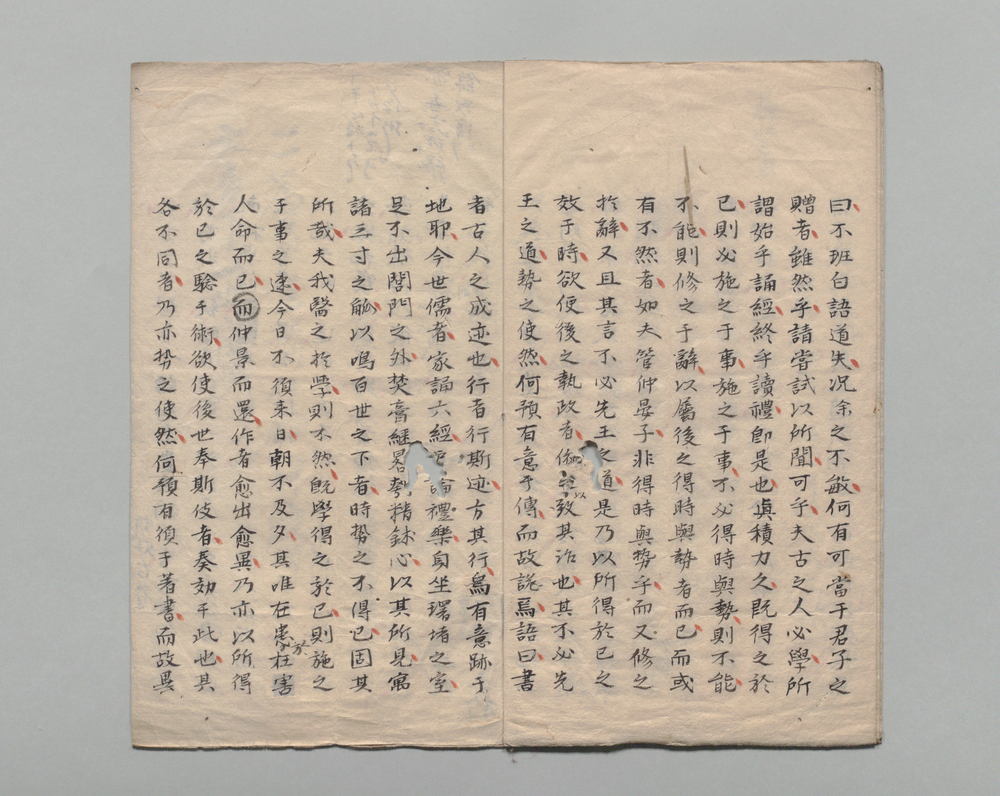 曰不班白語道失况余之不敏何有可當于君子之
贈者雖然乎請嘗試以所聞可乎夫古之人必學所
謂始乎誦經終乎讀禮即是也真積力久既得之於
已則必施之于事施之于事不必得時與勢則不能
不能則修之于辭以屬後之得時與勢者而已而或
有不然者如夫管仲晏子非得時與勢乎而又修之
於辭又且其言不必先王之道是乃以所得於已之
效于時欲使後之執政者以致其治也其不必先
王之道勢之使然何預有意乎傳而故託焉語曰書
者古人之成迹也行者行斯迹方其行焉有意跡于
地耶今世儒者家誦六經論禮樂身坐環堵之室
足不出閭門之外焚膏繼晷勢精鉥心以其所見寓
諸三寸之觚以鳴百世之下者時勢之不得已固其
所哉夫我醫之於學則不然既學得之於已則施之
于事之速今日不須来日朝不及夕其唯在患在於害
人命而已而仲景而還作者愈出愈異乃亦以所得
於已之驗于術欲使後世奉斯伎者奏効于此也其
各不同者乃亦勢之使然何預有須于著書而故異